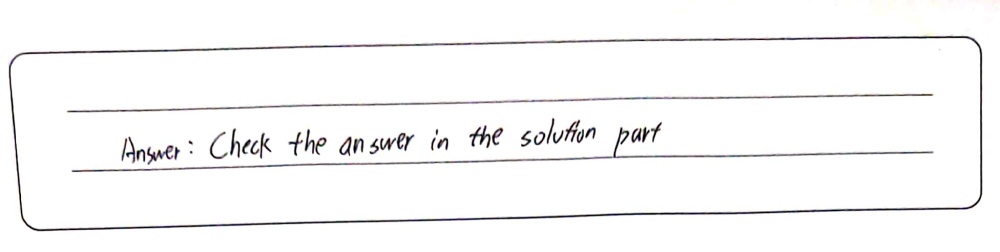 Answer: Check the answer in the solution part